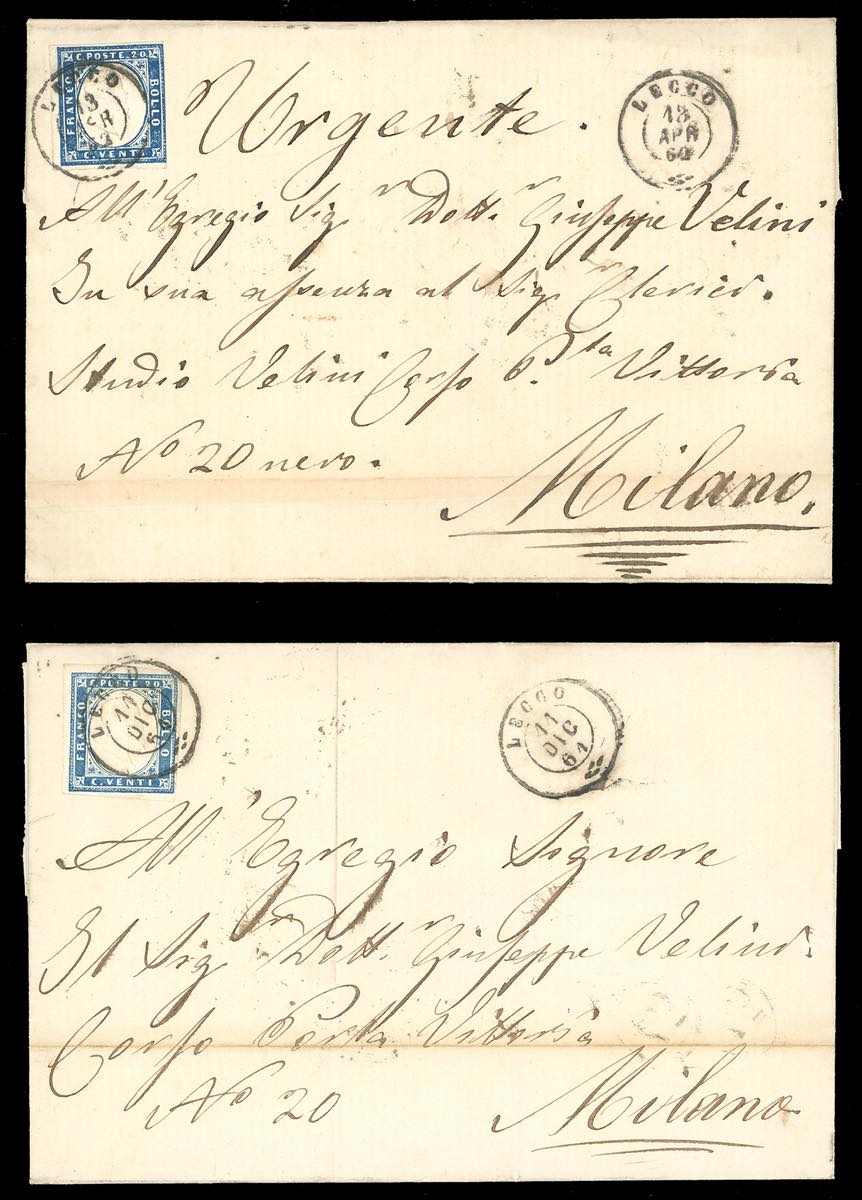 C. POSTE. 20
FRANCO
BOLLO
C. VENTI
LECCO
13
Urgente.
LECCO
13
APR
60
All' Egregio Sigr Dottr Giuseppe Velini
In sua assenza al Sigr Clerici.
Studio Velini Corso P.ta Vittoria
No 20 nero.
Milano,
C. POSTE 20
FRANCO
BOLLO
C. VENTI
LECCO
11
DIC
61
LECCO
11
DIC
61
All' Egregio Signore
Il Sigr Dottr Giuseppe Velini.
Corso Porta Vittoria
No 20
Milano